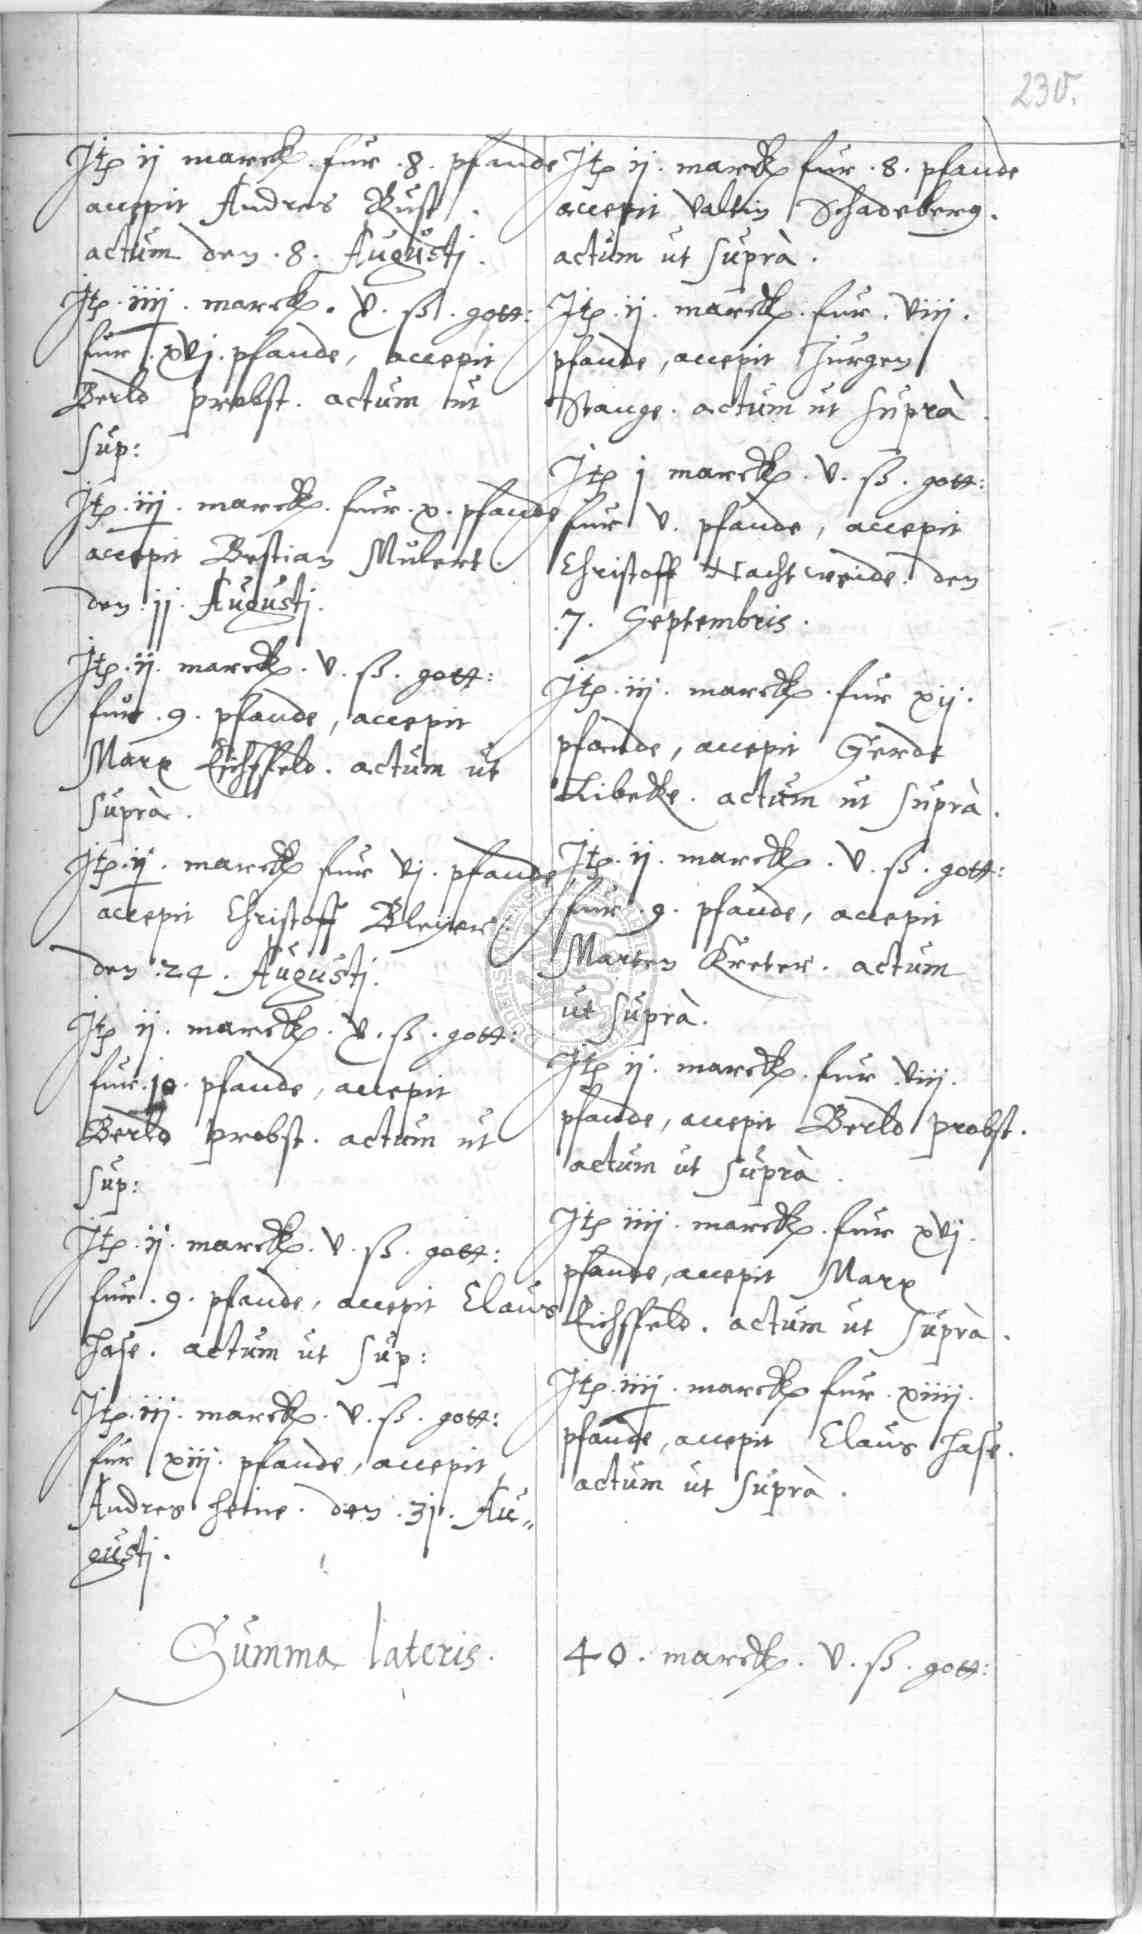 230.
Jtp ij marck. fur .8. pfande
accepit Andres Rust.
actum den .8. Augustj.
Jtp. iiij. marck. v. ß. gott:
fur .xvj. pfande, accepit
Berld Probst. actum ut
sup:
Jtp. iij. marck. fur .x. pfande
accepit Bestian Mulert.
den .jj. Augustj.
Jtp. ij. marck. v. ß. gott:
fur .9. pfande, accepit
Marx Eichsfeld. actum ut
suprà.
Jtp. ij. marck fur vj. pfande
accepit Christoff Bleyer.
den .24. Augustj.
Jtp ij. marck. v. ß. gott:
fur .10. pfande, accepit
Berld Probst. actum ut
sup:
Jtp. ij. marck. v. ß. gott:
fur .9. pfande, accepit Claus
Hase. actum ut sup:
Jtp. iij. marck. v. ß. gott:
fur xiij. pfande, accepit
Andres Heine. den .3j. Au„
gustj.
Summa lateris.
Jtp ij. marck fur .8. pfande
accepit Valtin Schadeberg.
actum ut suprà.
Jtp. ij. marck. fur. viij.
pfande, accepit Jurgen
Stange. actum ut suprà
Jtp j marck. v. ß. gott:
fur v. pfande, accepit
Christoff Nachtweide. den
.7. Septembris.
Jtp. iij. marck. fur xij.
pfande, accepit Gerdt
Libecke. actum ut suprà.
Jtp. ij. marck. v. ß. gott:
fur .9. pfande, accepit
Marten Kreter. actum
ut suprà.
Jtp ij. marck. fur .viij.
pfande, accepit Berld Probst.
actum ut suprà.
Jtp iiij. marck. fur xvj.
pfande, accepit Marx
Eichsfeld. actum ut suprà.
Jtp. iiij. marck fur .xiiij.
pfande, accepit Claus Hase.
actum ut suprà.
40. marck. v. ß. gott: